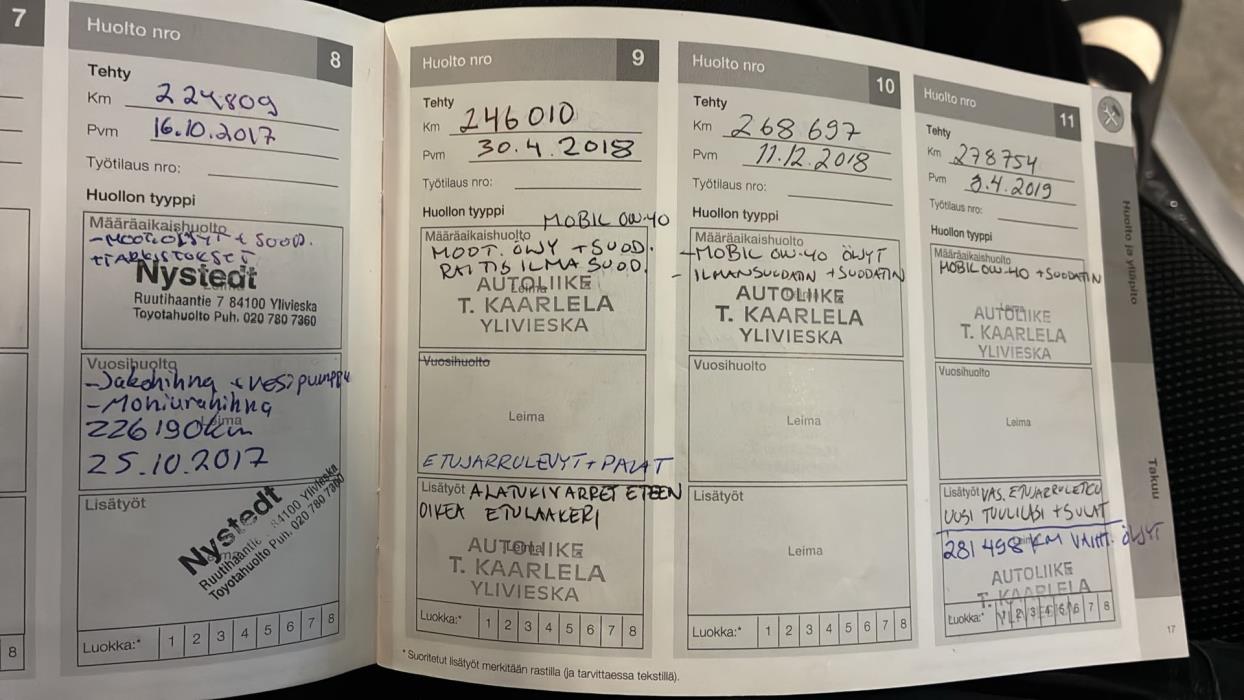 7
Huolto nro
8
Tehty
Km 224809
Pvm 16.10.2017
Työtilaus nro:
Huollon tyyppi
Määräaikaishuolto
-MOOT.ÖLJYT + SUOD.
+TARKISTUKSET
Nystedt
Ruutihaantie 7 84100 Ylivieska
Toyotahuolto Puh. 020 780 7360
Vuosihuolto
-Jakohihna + vesipumppu
-Moniurahihna
Leima
226190km
25.10.2017
Lisätyöt
Nystedt
Ruutihaantie 84100 Ylivieska
Toyotahuolto Puh. 020 780 7360
Luokka:* 1 2 3 4 5 6 7 8
8
Huolto nro
9
Tehty
Km 246010
Pvm 30.4.2018
Työtilaus nro:
Huollon tyyppi
MOBIL 0W-40
Määräaikaishuolto
MOOT. ÖLJY + SUOD.
RAITIS ILMA SUOD.
Leima
AUTOLIIKE
T. KAARLELA
YLIVIESKA
Vuosihuolto
Leima
ETUJARRULEVYT + PALAT
Lisätyöt ALATUKIVARRET ETEEN
OIKEA ETULAAKERI
Leima
AUTOLIIKE
T. KAARLELA
YLIVIESKA
Luokka:* 1 2 3 4 5 6 7 8
* Suoritetut lisätyöt merkitään rastilla (ja tarvittaessa tekstillä).
Huolto nro
10
Tehty
Km 268697
Pvm 11.12.2018
Työtilaus nro:
Huollon tyyppi
Määräaikaishuolto
-MOBIL 0W-40 ÖLJYT
- ILMANSUODATIN + SUODATIN
Leima
AUTOLIIKE
T. KAARLELA
YLIVIESKA
Vuosihuolto
Leima
Lisätyöt
Leima
Luokka:* 1 2 3 4 5 6 7 8
Huolto nro
11
Tehty
Km 278754
Pvm 3.4.2019
Työtilaus nro:
Huollon tyyppi
Määräaikaishuolto
MOBIL 0W-40 + SUODATIN
Leima
AUTOLIIKE
T. KAARLELA
YLIVIESKA
Vuosihuolto
Leima
Lisätyöt VAS. ETUJARRULETKU
UUSI TUULILASI + SULAT
281 498 KM VAIHT. ÖLJYT
AUTOLIIKE
T. KAARLELA
Luokka:* 1 2 3 4 5 6 7 8
17
Huolto ja ylläpito
Takuu